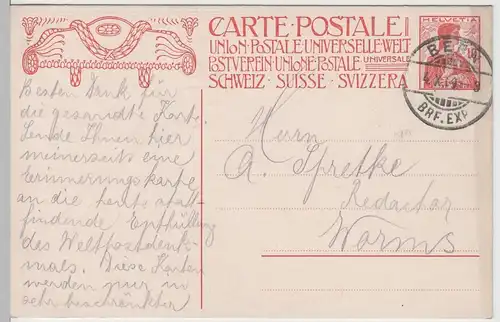 CARTE·POSTALE
UNION·POSTALE·UNIVERSELLE·WELT
POSTVEREIN·UNIONE·POSTALE·UNIVERSALE
SCHWEIZ·SUISSE·SVIZZERA
HELVETIA
BERN
BRF. EXP.
Besten Dank für
die gesandte Karte.
Sende Ihnen hier
meinerseits eine
Erinnerungskarte
an die heute statt-
findende Enthüllung
des Weltpostdenk-
mals. Diese Karten
werden nur in
sehr beschränkter
Herrn
A. Spretke
Redactor
Worms